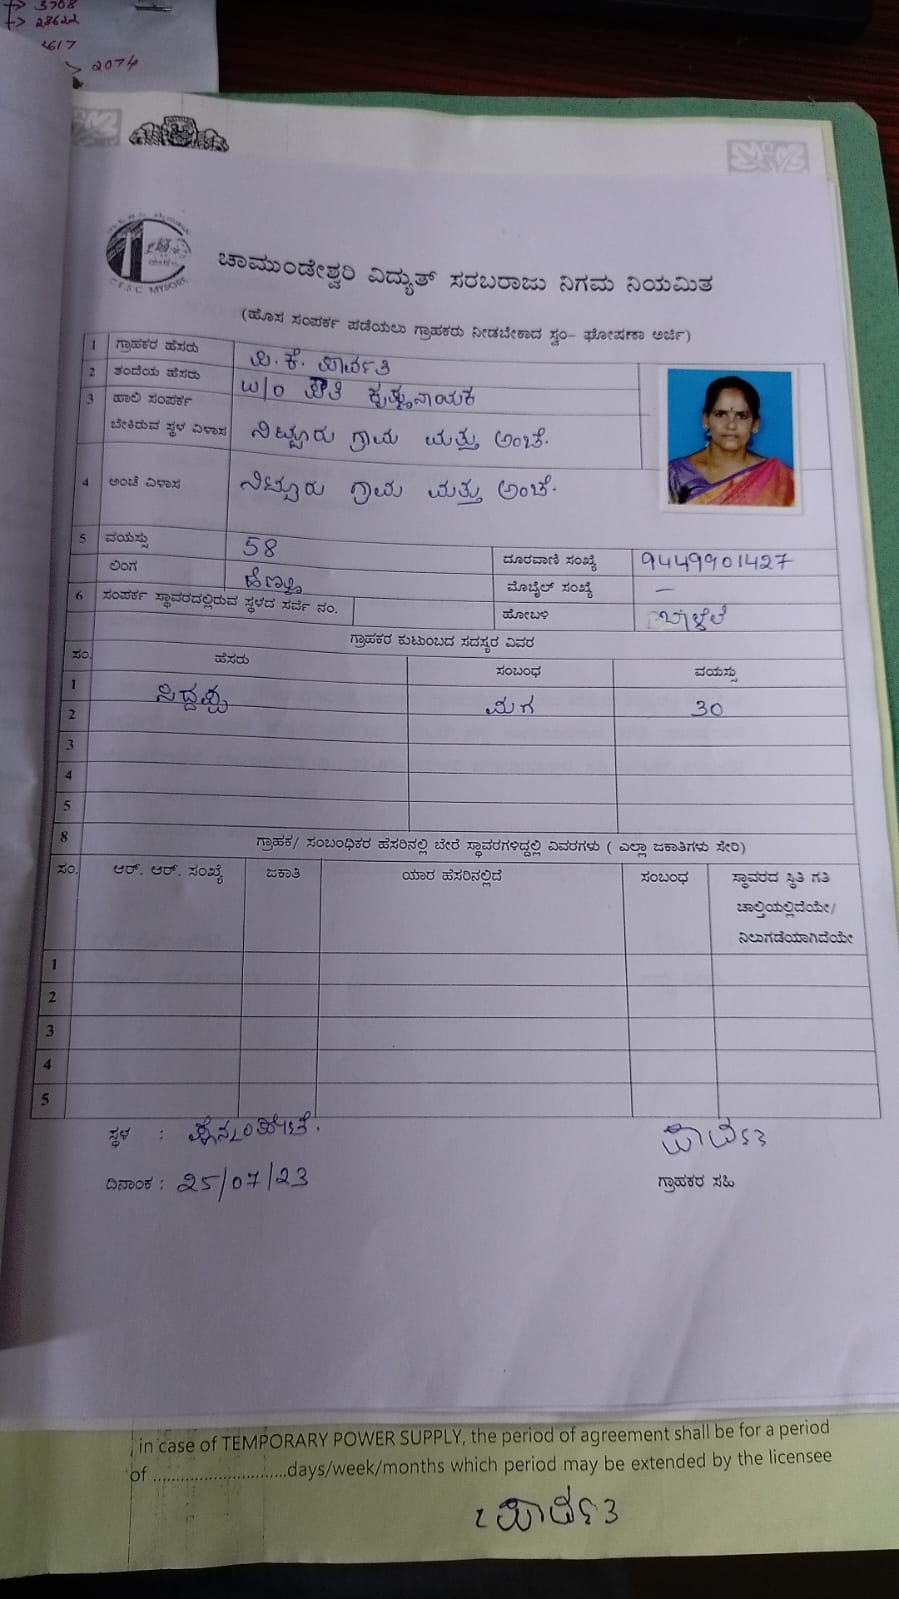 -> 3708
-> 28622
2617
> 2074
C.E.S.C. MYSORE
ಚಾಮುಂಡೇಶ್ವರಿ ವಿದ್ಯುತ್ ಸರಬರಾಜು ನಿಗಮ ನಿಯಮಿತ
(ಹೊಸ ಸಂಪರ್ಕ ಪಡೆಯಲು ಗ್ರಾಹಕರು ನೀಡಬೇಕಾದ ಸ್ವಂ- ಘೋಷಣಾ ಅರ್ಜಿ)
1 ಗ್ರಾಹಕರ ಹೆಸರು ಪಿ.ಕೆ. ಪಾರ್ವತಿ
2 ತಂದೆಯ ಹೆಸರು W/o ಕೃಷ್ಣನಾಯಕ
3 ಹಾಲಿ ಸಂಪರ್ಕ
ಬೇಕಿರುವ ಸ್ಥಳ ವಿಳಾಸ ನಿಟ್ಟೂರು ಗ್ರಾಮ ಮತ್ತು ಅಂಚೆ.
4 ಅಂಚೆ ವಿಳಾಸ ನಿಟ್ಟೂರು ಗ್ರಾಮ ಮತ್ತು ಅಂಚೆ.
5 ವಯಸ್ಸು 58 ದೂರವಾಣಿ ಸಂಖ್ಯೆ 9449901427
ಲಿಂಗ ಹೆಣ್ಣು ಮೊಬೈಲ್ ಸಂಖ್ಯೆ —
6 ಸಂಪರ್ಕ ಸ್ಥಾವರದಲ್ಲಿರುವ ಸ್ಥಳದ ಸರ್ವೆ ನಂ. ಹೋಬಳಿ ಬಾಳೆಲೆ
ಗ್ರಾಹಕರ ಕುಟುಂಬದ ಸದಸ್ಯರ ವಿವರ
ಸಂ. ಹೆಸರು ಸಂಬಂಧ ವಯಸ್ಸು
1 ಸಿದ್ದಪ್ಪ ಮಗ 30
2
3
4
5
8 ಗ್ರಾಹಕ/ ಸಂಬಂಧಿಕರ ಹೆಸರಿನಲ್ಲಿ ಬೇರೆ ಸ್ಥಾವರಗಳಿದ್ದಲ್ಲಿ ವಿವರಗಳು ( ಎಲ್ಲಾ ಜಕಾತಿಗಳು ಸೇರಿ)
ಸಂ. ಆರ್. ಆರ್. ಸಂಖ್ಯೆ ಜಕಾತಿ ಯಾರ ಹೆಸರಿನಲ್ಲಿದೆ ಸಂಬಂಧ ಸ್ಥಾವರದ ಸ್ಥಿತಿ ಗತಿ
ಚಾಲ್ತಿಯಲ್ಲಿದೆಯೇ/
ನಿಲುಗಡೆಯಾಗಿದೆಯೇ
1
2
3
4
5
ಸ್ಥಳ : ಪೊನ್ನಂಪೇಟೆ. ಪಾರ್ವತಿ
ದಿನಾಂಕ : 25/07/23 ಗ್ರಾಹಕರ ಸಹಿ
in case of TEMPORARY POWER SUPPLY, the period of agreement shall be for a period
of ............................days/week/months which period may be extended by the licensee
ಪಾರ್ವತಿ